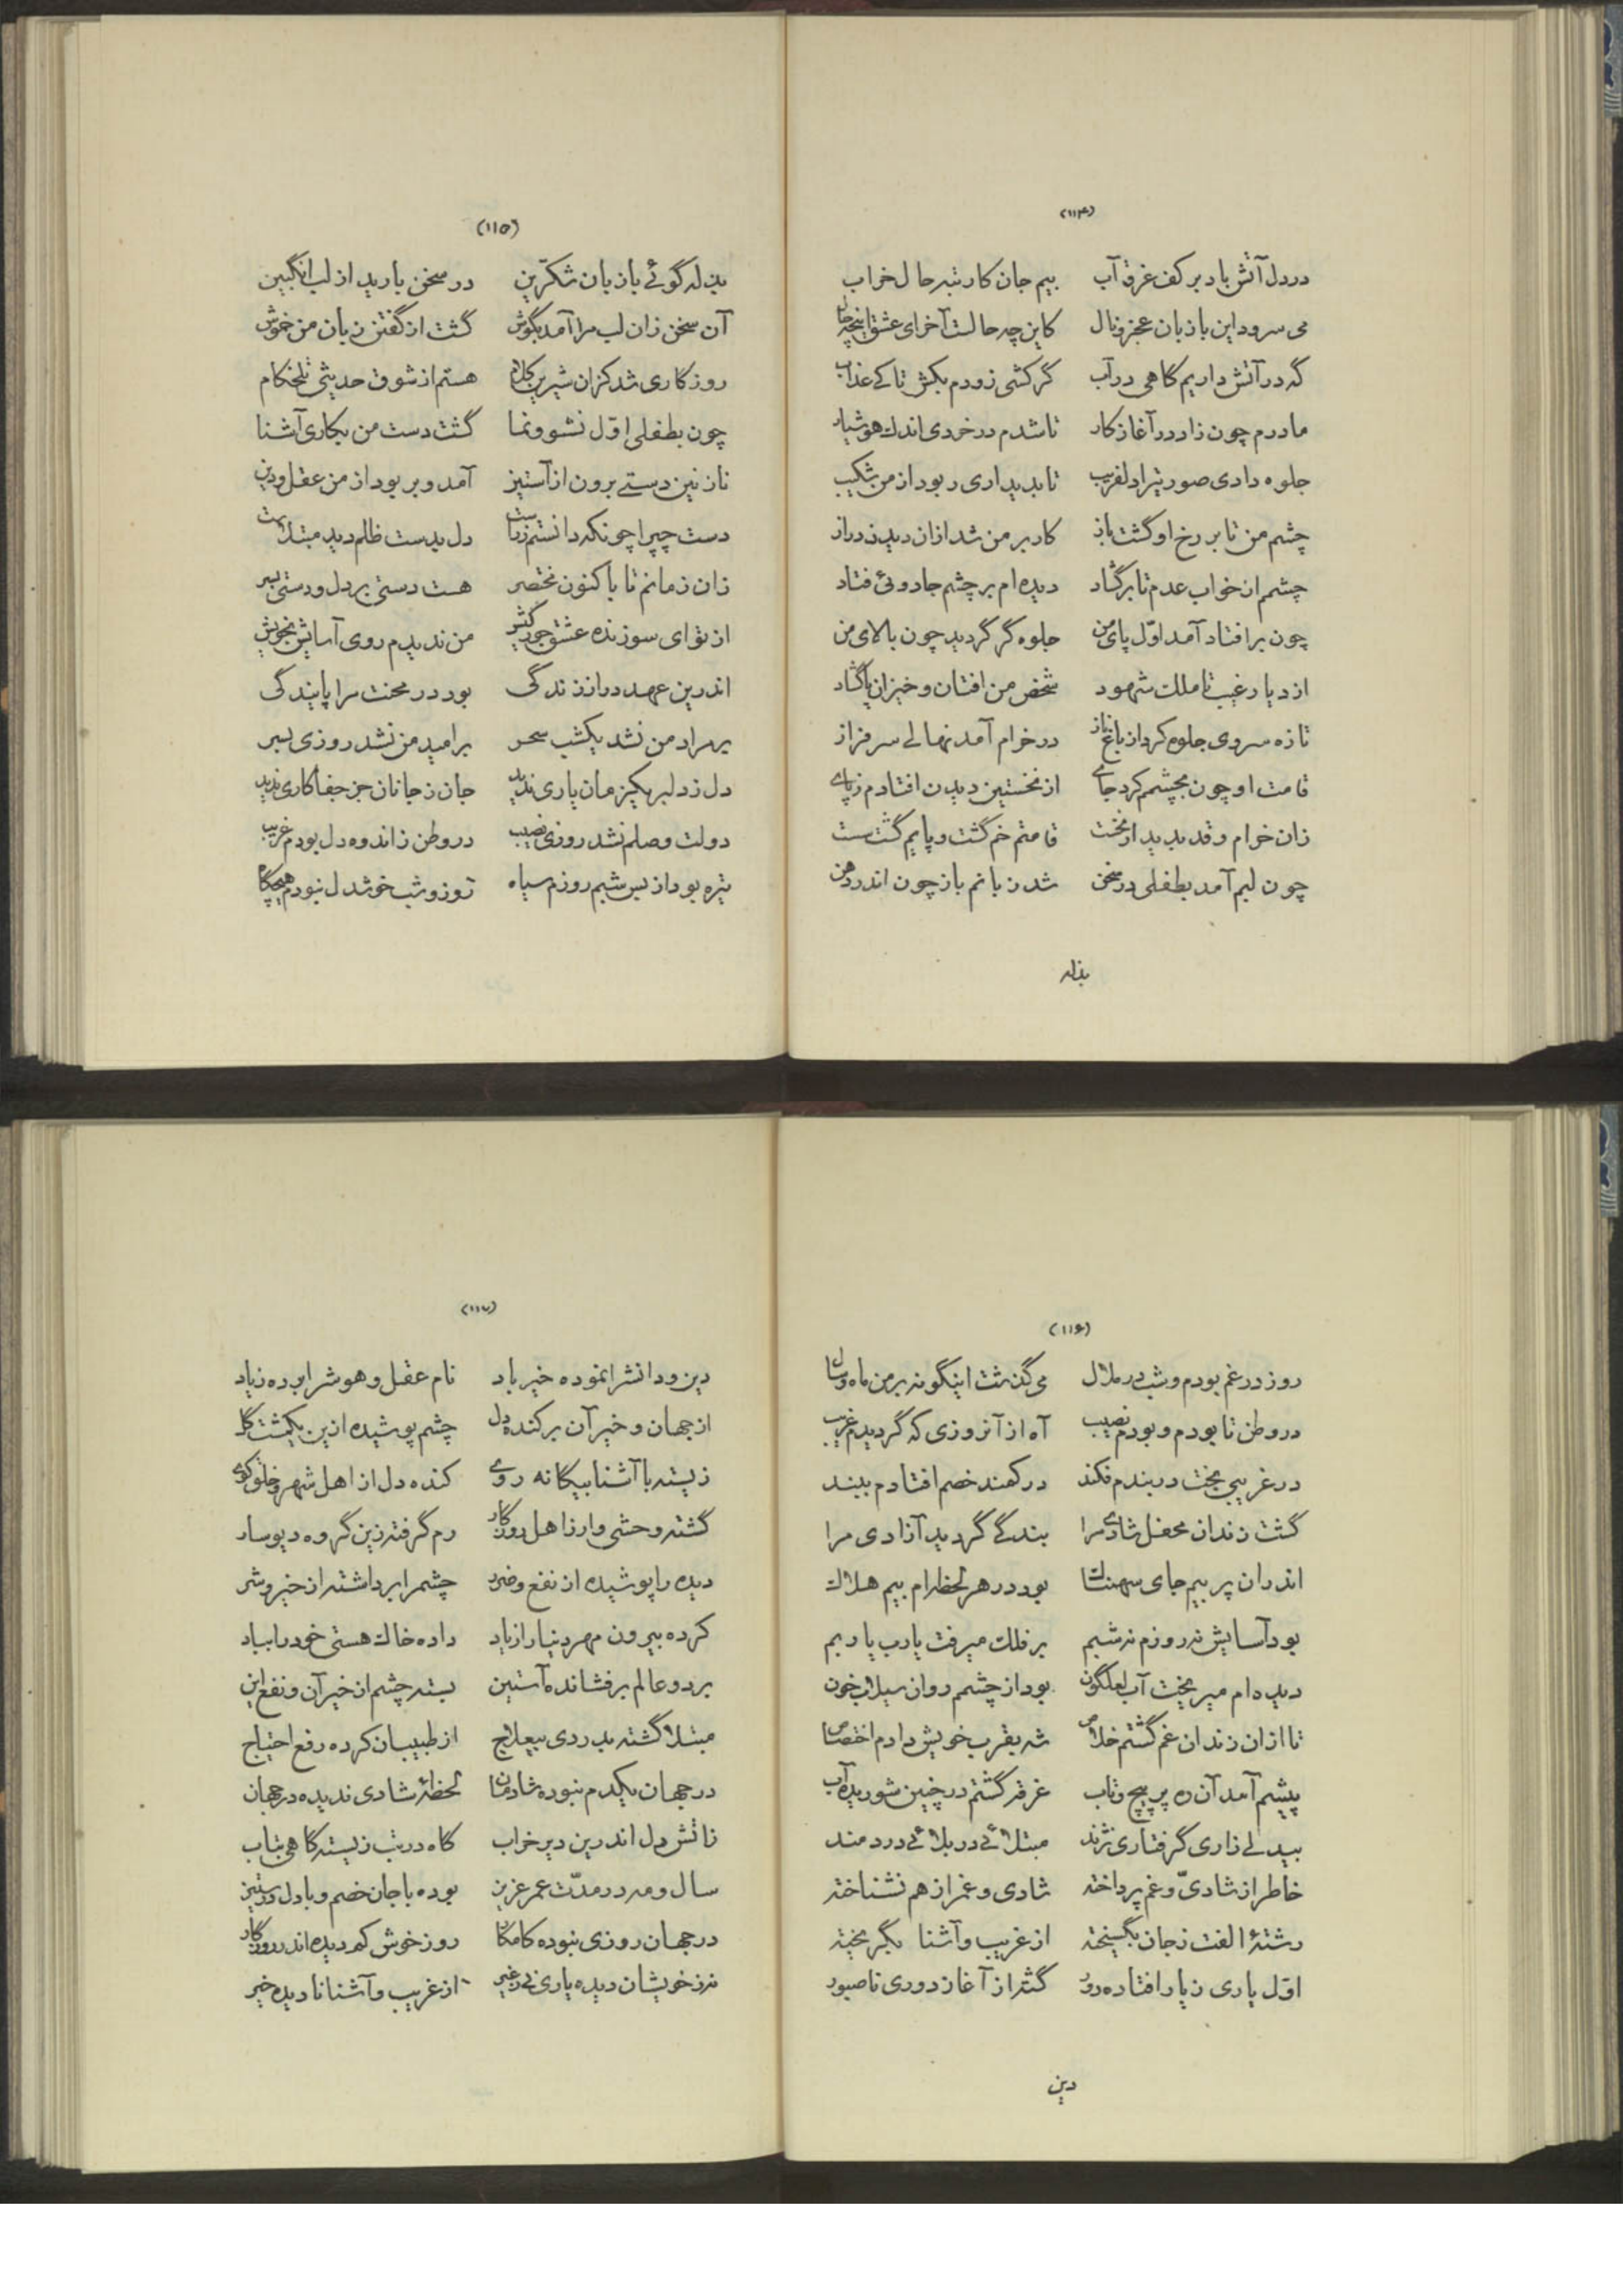 (۱۱۴)
در دل آتش باد بر کف غرق آب بیم جان کار تبه حال خراب
می سرود این با زبان عجز و نال کاین چه حالست آخر ای عشق اینچه حال
گه در آتش داریم کاهی در آب گر کشی زودم بکش تا کے عذاب
مادرم چون زاد در آغاز کار تا شدم در خردی اندک هوشیار
جلوه دادی صورتیرا دلفریب تا بدیداری ربود از من شکیب
چشم من تا بر رخ او گشت باز کار بر من شد ازان دیدن دراز
چشمم از خواب عدم تا بر گشاد دیده ام بر چشم جادوئی فتاد
چون برافتاد آمد اوّل پای من جلوه گر گردید چون بالای من
از دیار غیب تا ملک شهود شخص من افتان و خیزان پا گشاد
تازه سروی جلوه کرد از باغ ناز در خرام آمد نهالے سرفراز
قامت او چون بچشمم کرد جاے از نخستین دیدن افتادم ز پاے
زان خرام و قد بدید از بخت قامتم خم گشت و پایم گشت سست
چون لبم آمد بطفلی در سخن شد زبانم باز چون اندر دهن
بذله
(۱۱۵)
بذله گوئے با زبان شکّرین در سخن بارید از لب انگبین
آن سخن زان لب مرا آمد بگوش گشت از گفتن زبان من خموش
روزگاری شد کزان شیرین کلام هستم از شوق حدیثی تلخکام
چون بطفلی اوّل نشو و نما گشت دست من بکاری آشنا
نازنین دستے برون از آستین آمد و بربود از من عقل و دین
دست چپرا چونکه دانستم ز راست دل بدست ظلم دید مبتلاست
زان زمانم تا با کنون مختصر هست دستی بر دل و دستی بسر
از تو ای سوزنده عشق جور کیش من ندیدم روی آسایش بخویش
اندرین عهد دراز زندگی بود در محنت مرا پایندگی
بر مراد من نشد یکشب سحر بر امید من نشد روزی بسر
دل ز دلبر یکزمان یاری ندید جان ز جانان جز جفا کاری ندید
دولت وصلم نشد روزی نصیب در وطن ز اندوه دل بودم غریب
تیره بود از بس شبم روزم سیاه روز و شب خوشدل نبودم هیچگاه
(۱۱۶)
روز در غم بودم و شب در ملال می گذشت اینگونه بر من ماه و سال
در وطن تا بودم و بودم نصیب آه از آنروزی که گردیدم غریب
در غریبی بخت در بندم فکند در کمند خصم افتادم ببند
گشت زندان محفل شادی مرا بندگے گردید آزادی مرا
اندران پر بیم جای سهمناک بود در هر لحظه‌ام بیم هلاک
بود آسایش نه روزم نه شبم بر فلک میرفت یارب یاربم
دیده ام میریخت آب لعلگون بود از چشمم روان سیلاب خون
تا ازان زندان غم گشتم خلاص شه بقرب خویش دادم اختصاص
پیشم آمد آن ره پر پیچ و تاب غرقه گشتم در چنین شوریده آب
بیدلے زاری گرفتاری نژند مبتلائے در بلائے دردمند
خاطر از شادیّ و غم پرداخته شادی و غم از هم نشناخته
رشتهٔ الفت ز جان بگسیخته از غریب و آشنا بگریخته
اوّل یاری ز یار افتاده دور گشته از آغاز دوری ناصبور
دین
(۱۱۷)
دین و دانشرا نموده خیر باد نام عقل و هوشرا برده ز یاد
از جهان و خیر آن برکنده دل چشم پوشیده ازین یکمشت گل
زیسته با آشنا بیگانه روے کنده دل از اهل شهر و خلق کوے
گشته وحشی وار ز اهل روزگار رم گرفته زین گروه دیوسار
دیده را پوشیده از نفع و ضرر چشم را برداشته از خیر و شر
کرده بیرون مهر دنیا را ز یاد داده خاک هستی خود را بباد
بر دو عالم برفشانده آستین بسته چشم از خیر آن و نفع این
مبتلا گشته بدردی بیعلاج از طبیبان کرده رفع احتیاج
در جهان یکدم نبوده شادمان لحظهٔ شادی ندیده در جهان
ز آتش دل اندرین دیر خراب گاه در تب زیسته گاهی بتاب
سال و مه در مدّت عمر عزیز بوده با جان خصم و با دل در ستیز
در جهان روزی نبوده کامکار روز خوش کم دیده اندر روزگار
نه ز خویشان دیده یاری نے ز غیر از غریب و آشنا نادیده خیر